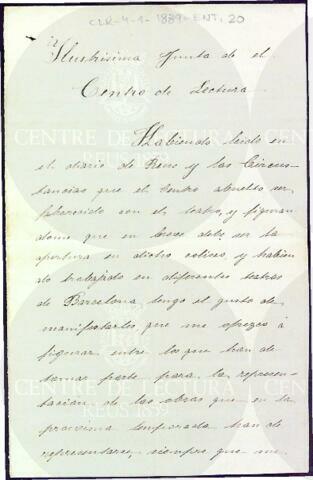 CLR-4-1-1889-ENT, 20
Ilustrisima Junta de el
Centro de Lectura.
Habiendo leido en
el diario de Reus y las Circus-
tancias que el Centro
faborecido con el teatro, y figuran
dome que en breve debe ser la
apertura en dichro coliseo, y habien
do trabajado en diferentes teatros
de Barcelona tengo el gusto de
manifestarles, que me ofrezco á
figurar entre los que han de
tomar parte para la represen-
tacion de las obras que en la
procsima temporada han de
representarse, siempre que me
CENTRE DE LECTURA
REUS 1859
CENTRE DE LECTURA
REUS 1859